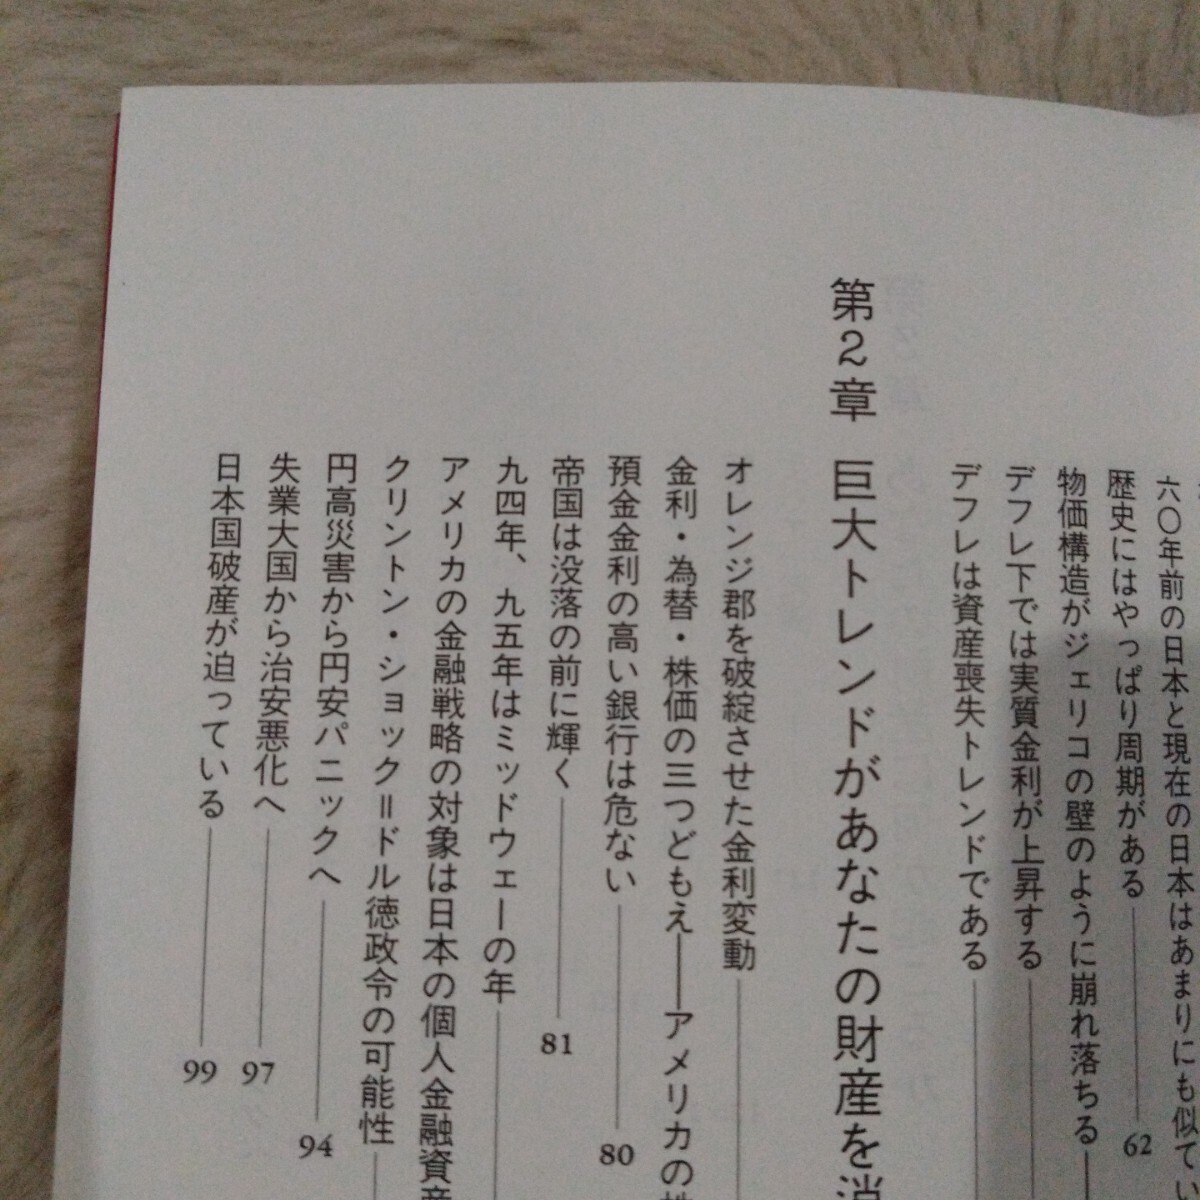 六〇年前の日本と現在の日本はあまりにも似てい
歴史にはやっぱり周期がある 62
物価構造がジェリコの壁のように崩れ落ちる
デフレ下では実質金利が上昇する
デフレは資産喪失トレンドである
第2章 巨大トレンドがあなたの財産を消
オレンジ郡を破綻させた金利変動
金利・為替・株価の三つどもえ――アメリカの株
預金金利の高い銀行は危ない 80
帝国は没落の前に輝く 81
九四年、九五年はミッドウェーの年
アメリカの金融戦略の対象は日本の個人金融資産
クリントン・ショック＝ドル徳政令の可能性
円高災害から円安パニックへ 94
失業大国から治安悪化へ 97
日本国破産が迫っている 99